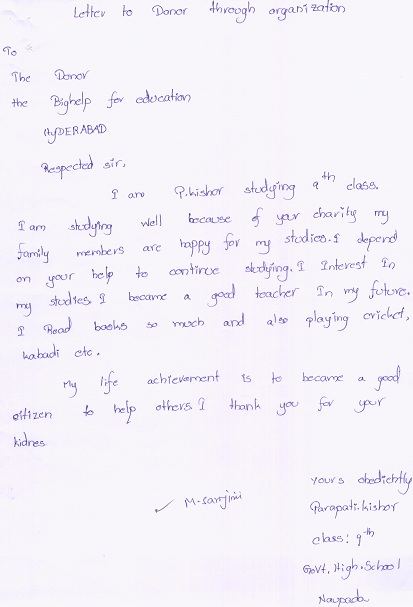 Letter to Donor through organization
To
The Donor
the Bighelp for education
HYDERABAD
Respected sir,
I am P.kishor studying 9th class.
I am studying well because of your charity my
family members are happy for my studies. I depend
on your help to continue studying. I Interest In
my studies I became a good teacher In my future.
I Read books so much and also playing cricket,
kabadi etc.
My life achievement is to became a good
citizen to help others I thank you for your
kidnes
M-sarojini
yours obedichtly
Garapati.kishor
class: 9th
Govt. High. School
Naupada